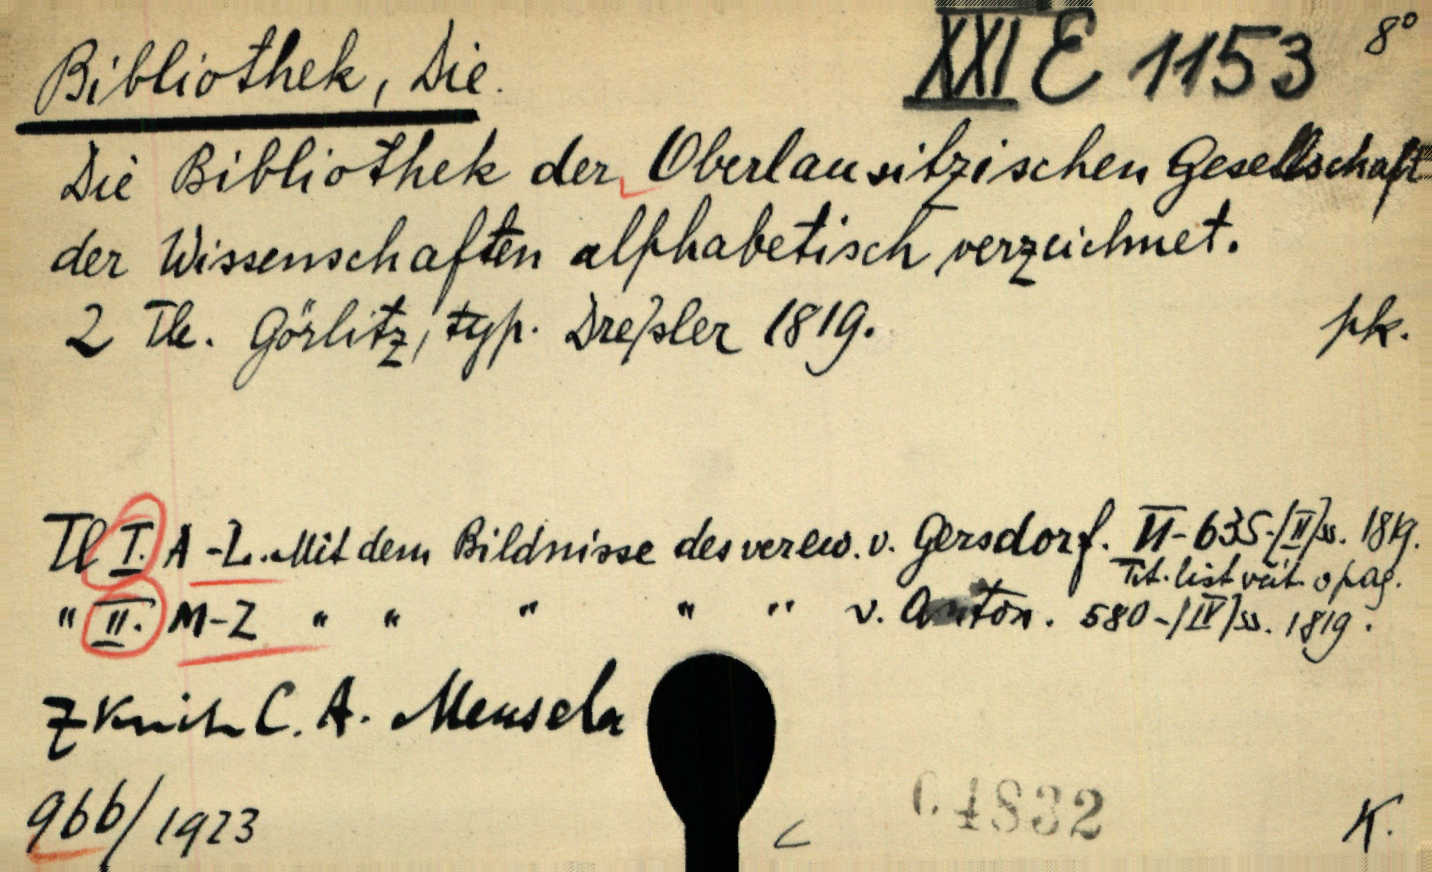 Bibliothek, Die.
XXI E 1153 8°
Die Bibliothek der Oberlausitzischen Gesellschaft
der Wissenschaften alphabetisch verzeichnet.
2 Tle. Görlitz, typ. Dreßler 1819.
pk.
Tl I. A-L. Mit dem Bildnisse des verew. v. Gersdorf. VI-635-[II] ss. 1819.
Tit. list vaит o pag.
" II. M-Z " " " " " v. Anton. 580-[IV] ss. 1819.
Z knih C. A. Mensela
966/1923
C 4832
K.